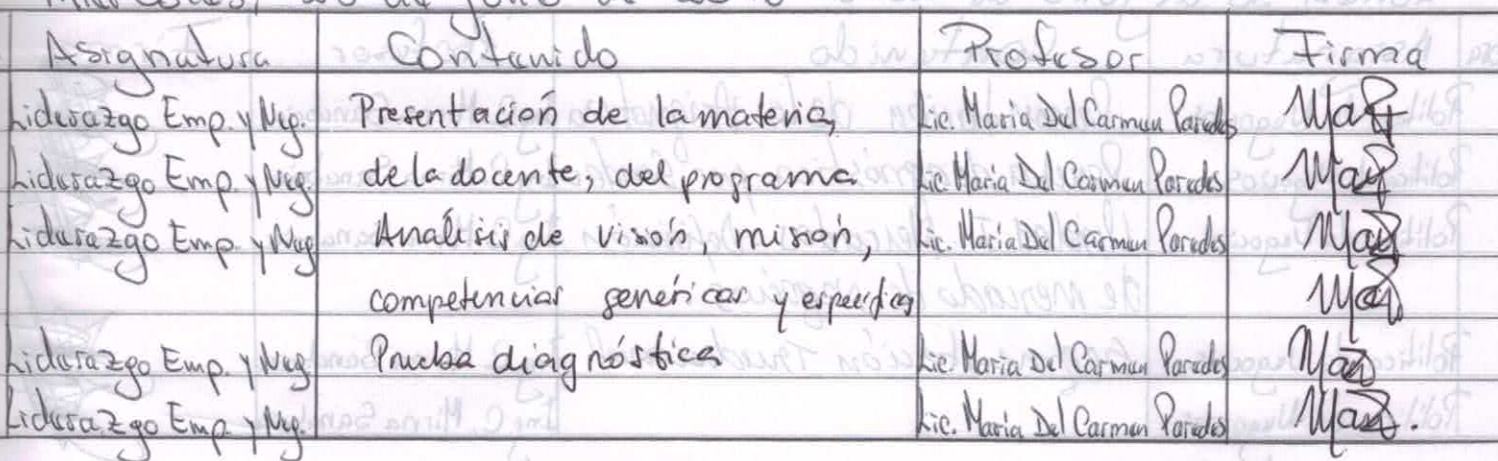 Asignatura Contenido Profesor Firma
Liderazgo Emp. y Neg. Presentación de la materia, Lic. Maria Del Carmen Paredes
Liderazgo Emp. y Neg. de la docente, del programa Lic. Maria Del Carmen Paredes
Liderazgo Emp. y Neg. Análisis de visión, misión, Lic. Maria Del Carmen Paredes
competencias genéricas y específicas
Liderazgo Emp. y Neg. Prueba diagnóstica Lic. Maria Del Carmen Paredes
Liderazgo Emp. y Neg. Lic. Maria Del Carmen Paredes